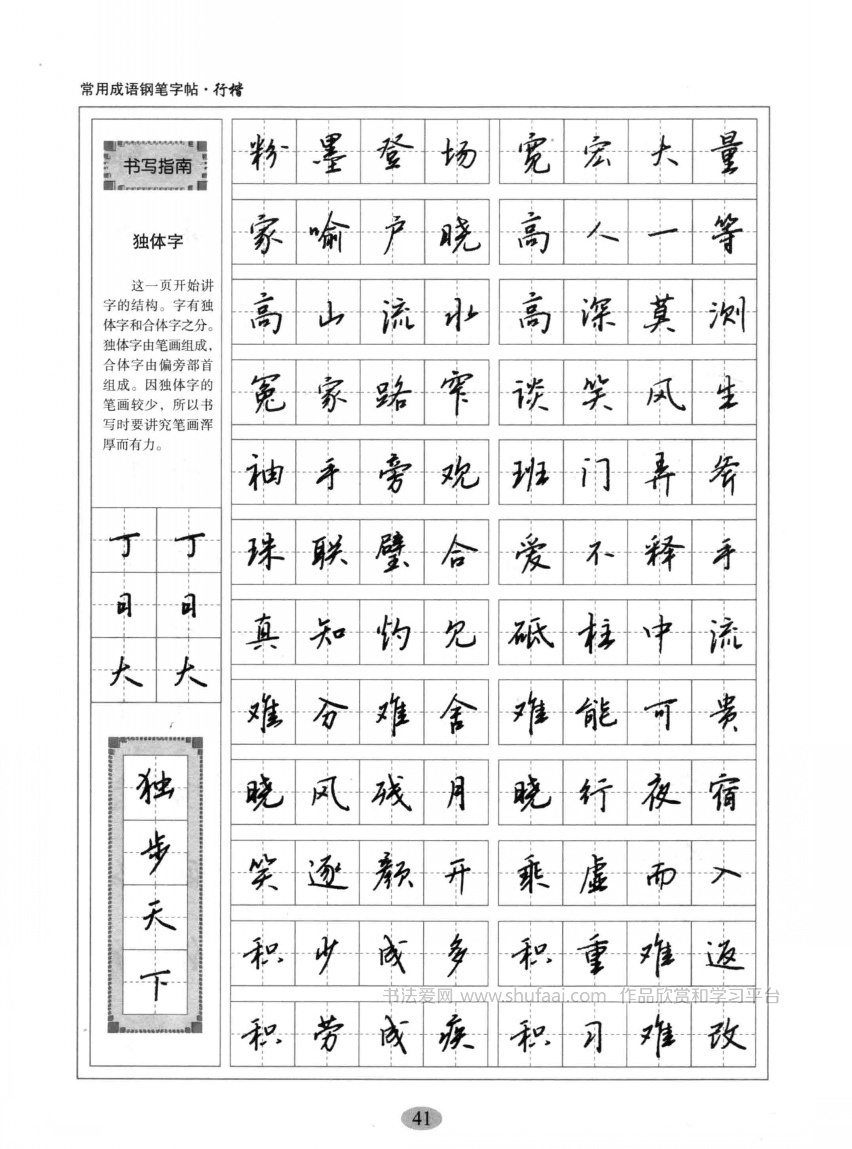 常用成语钢笔字帖·行楷
书写指南
独体字
这一页开始讲
字的结构。字有独
体字和合体字之分。
独体字由笔画组成，
合体字由偏旁部首
组成。因独体字的
笔画较少，所以书
写时要讲究笔画浑
厚而有力。
丁 丁
日 日
大 大
独
步
天
下
粉墨登场 宽宏大量
家喻户晓 高人一等
高山流水 高深莫测
冤家路窄 谈笑风生
袖手旁观 班门弄斧
珠联璧合 爱不释手
真知灼见 砥柱中流
难分难舍 难能可贵
晓风残月 晓行夜宿
笑逐颜开 乘虚而入
积少成多 积重难返
书法爱网 www.shufaai.com 作品欣赏和学习平台
积劳成疾 积习难改
41